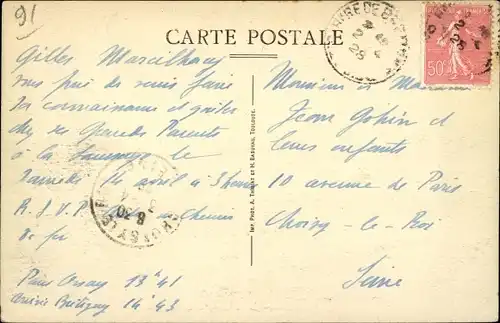 91
CARTE POSTALE
Gilles Marcilhacy
vous prie de venir faire
sa connaissance et goûter
chez ses Grands Parents
à la le
Samedi 14 avril à 3 heures
R.S.V.P. Chemin
de fer
Paris Orsay 13h41
arrivée Brétigny 14h43
Monsieur et Madame
Jean Gohin et
leurs enfants
10 avenue de Paris
Choisy-le-Roi
Seine
IMP. PHOT. A. THIRIET ET H. BASUYAU, TOULOUSE.
50c
CHOISY-LE-R
8 30